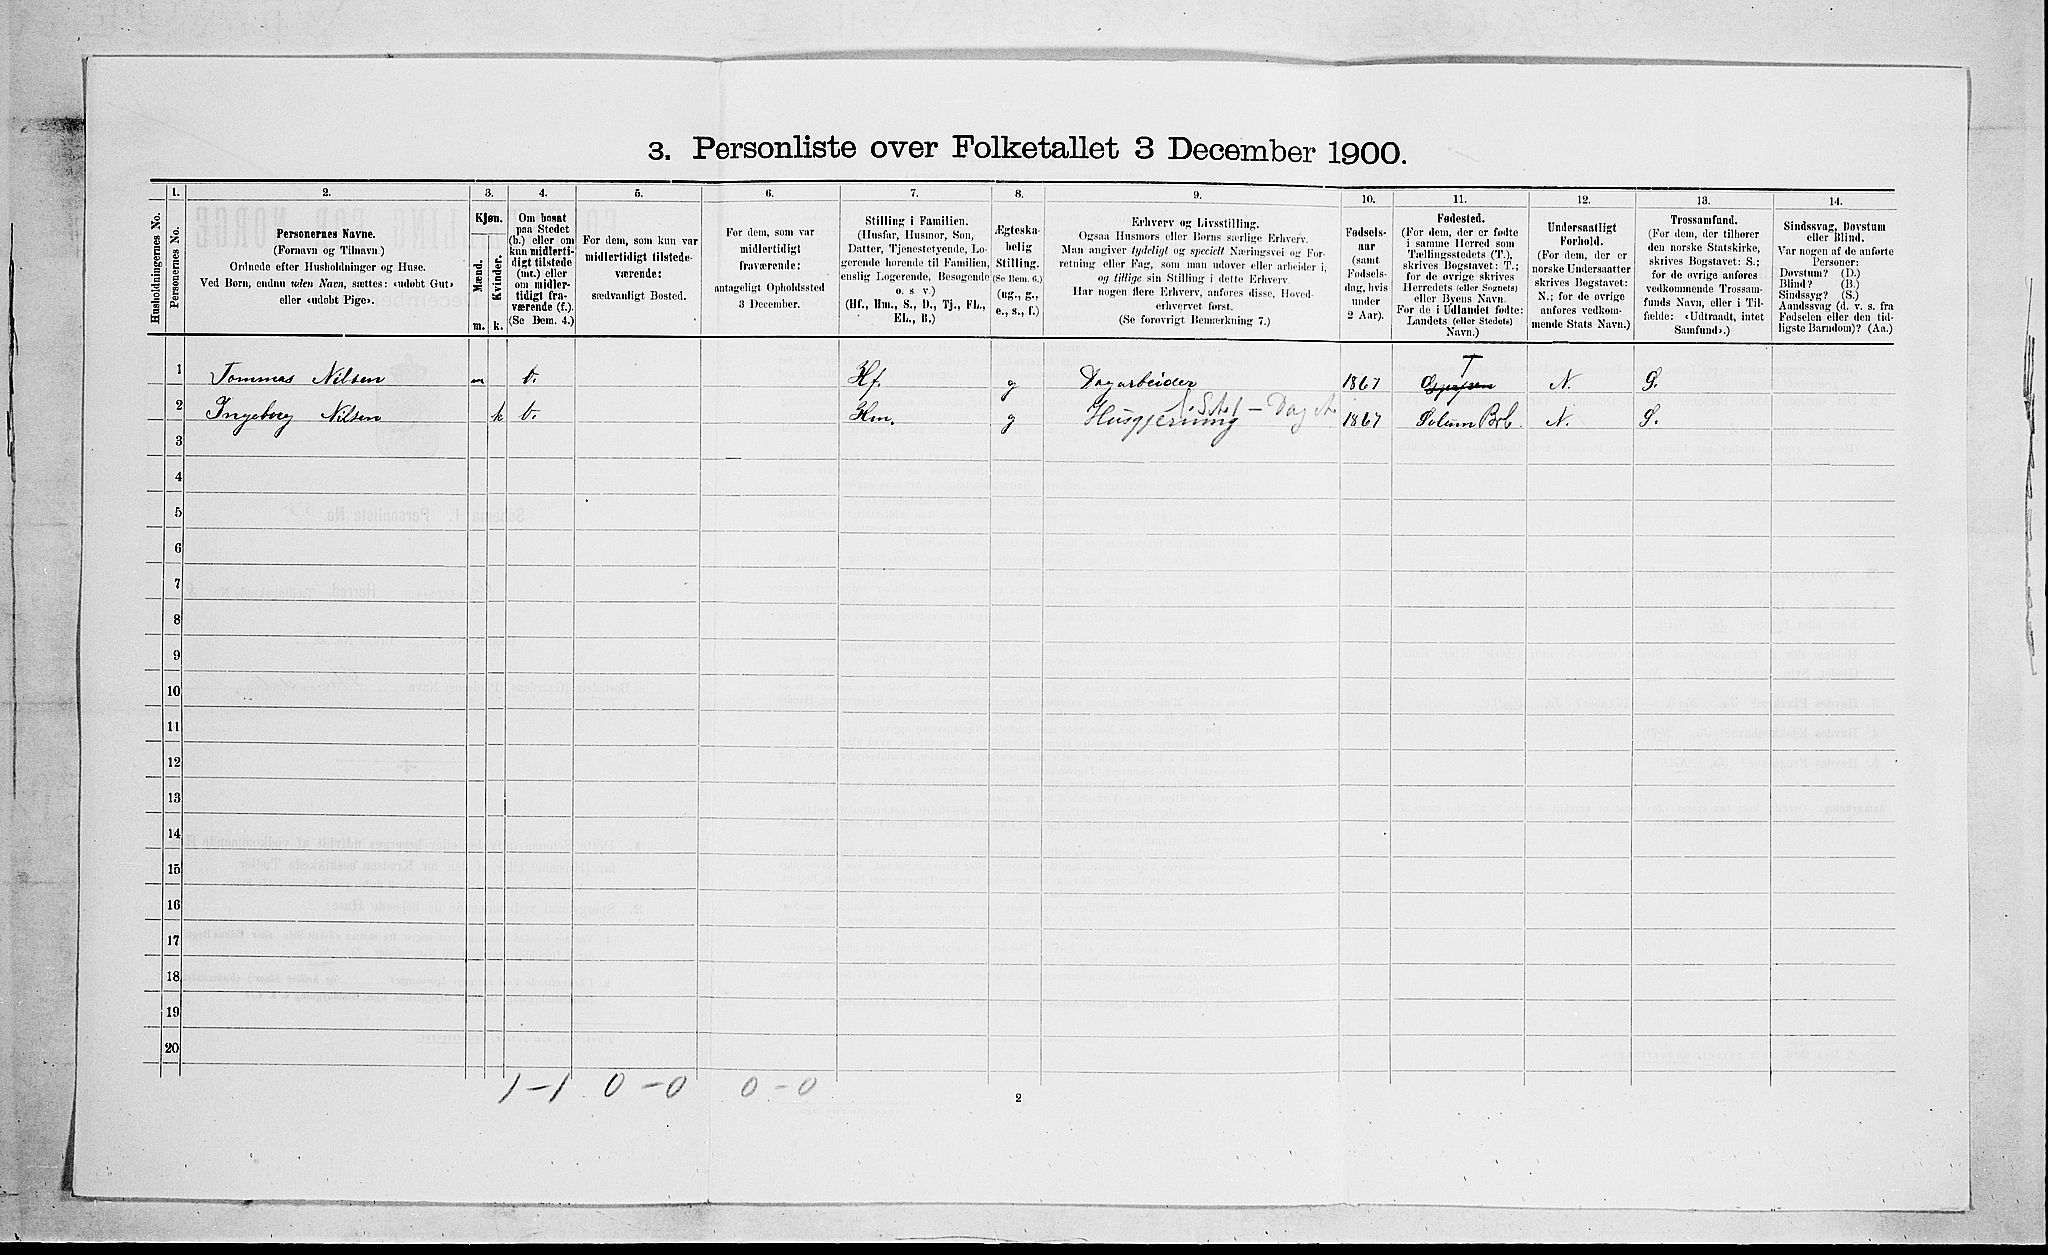 3. Personliste over Folketallet 3 December 1900.
1. 2. 3. 4. 5. 6. 7. 8. 9. 10. 11. 12. 13. 14.
Husholdningernes No.
Personernes No.
Personernes Navne.
(Fornavn og Tilnavn.)
Ordnede efter Husholdninger og Huse.
Ved Børn, endnu uden Navn, sættes: «udøbt Gut»
eller «udøbt Pige».
Kjøn.
Mænd.
Kvinder.
m. k.
Om bosat
paa Stedet
(b.) eller om
kun midlerti-
digt tilstede
(mt.) eller
om midler-
tidigt fra-
værende (f.).
(Se Bem. 4.)
For dem, som kun var
midlertidigt tilstede-
værende:
sædvanligt Bosted.
For dem, som var
midlertidigt
fraværende:
antageligt Opholdssted
3 December.
Stilling i Familien.
(Husfar, Husmor, Søn,
Datter, Tjenestetyende, Lo-
gerende hørende til Familien,
enslig Logerende, Besøgende
o. s. v.)
(Hf., Hm., S., D., Tj., FL.,
EL., B.)
Ægteska-
belig
Stilling.
(Se Bem. 6.)
(ug., g.,
e., s., f.)
Erhverv og Livsstilling.
Ogsaa Husmors eller Børns særlige Erhverv.
Man angiver tydeligt og specielt Næringsvei og For-
retning eller Fag, som man udøver eller arbeider i,
og tillige sin Stilling i dette Erhverv.
Har nogen flere Erhverv, anføres disse, Hoved-
erhvervet først.
(Se forøvrigt Bemærkning 7.)
Fødsels-
aar
(samt
Fødsels-
dag, hvis
under
2 Aar).
Fødested.
(For dem, der er fødte
i samme Herred som
Tællingsstedets (T.),
skrives Bogstavet: T.;
for de øvrige skrives
Herredets (eller Sognets)
eller Byens Navn.
For de i Udlandet fødte:
Landets (eller Stedets)
Navn.)
Undersaatligt
Forhold.
(For dem, der er
norske Undersaatter
skrives Bogstavet:
N.; for de øvrige
anføres vedkom-
mende Stats Navn.)
Trossamfund.
(For dem, der tilhører
den norske Statskirke,
skrives Bogstavet: S.;
for de øvrige anføres
vedkommende Trossam-
funds Navn, eller i Til-
fælde: «Udtraadt, intet
Samfund».)
Sindssvag, Døvstum
eller Blind.
Var nogen af de anførte
Personer:
Døvstum? (D.)
Blind? (B.)
Sindssyg? (S.)
Aandssvag (d. v. s. fra
Fødselen eller den tid-
ligste Barndom)? (Aa.)
1 Tommas Nilsen m b. Hf. g Dagarbeider 1867 T N. S.
2 Ingeborg Nilsen k b. Hm. g Husgjerning 1867 Solum Brb. N. S.
3
4
5
6
7
8
9
10
11
12
13
14
15
16
17
18
19
20
1 – 1 0 – 0 0 – 0
2